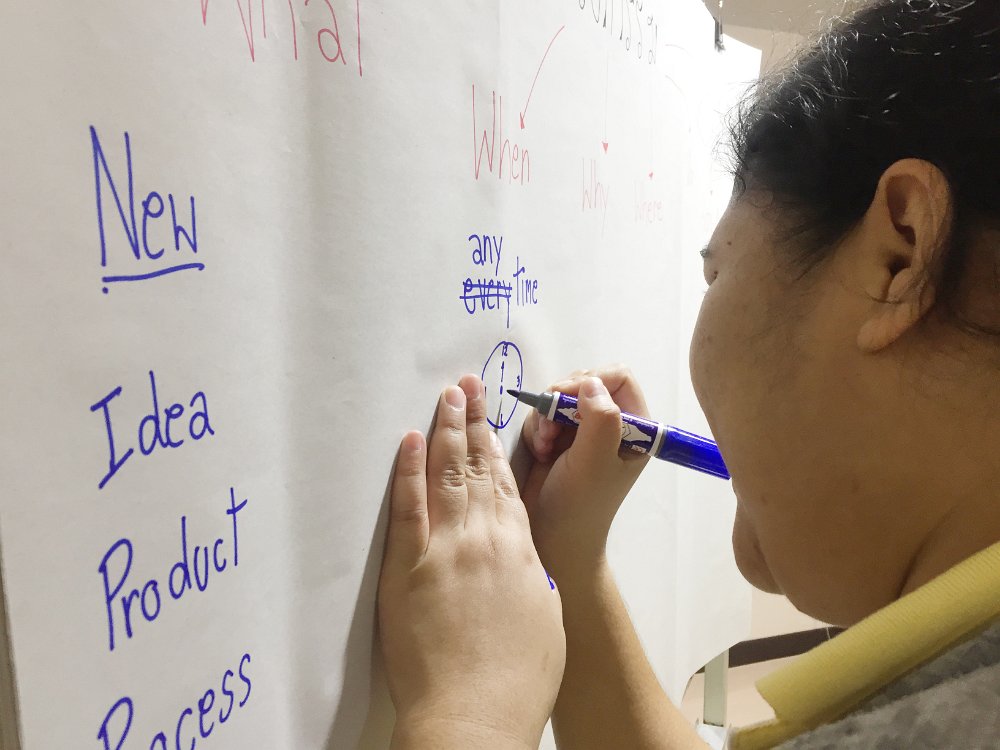 What
When
Why
Where
New
any
every time
12
3
Idea
Product
Process